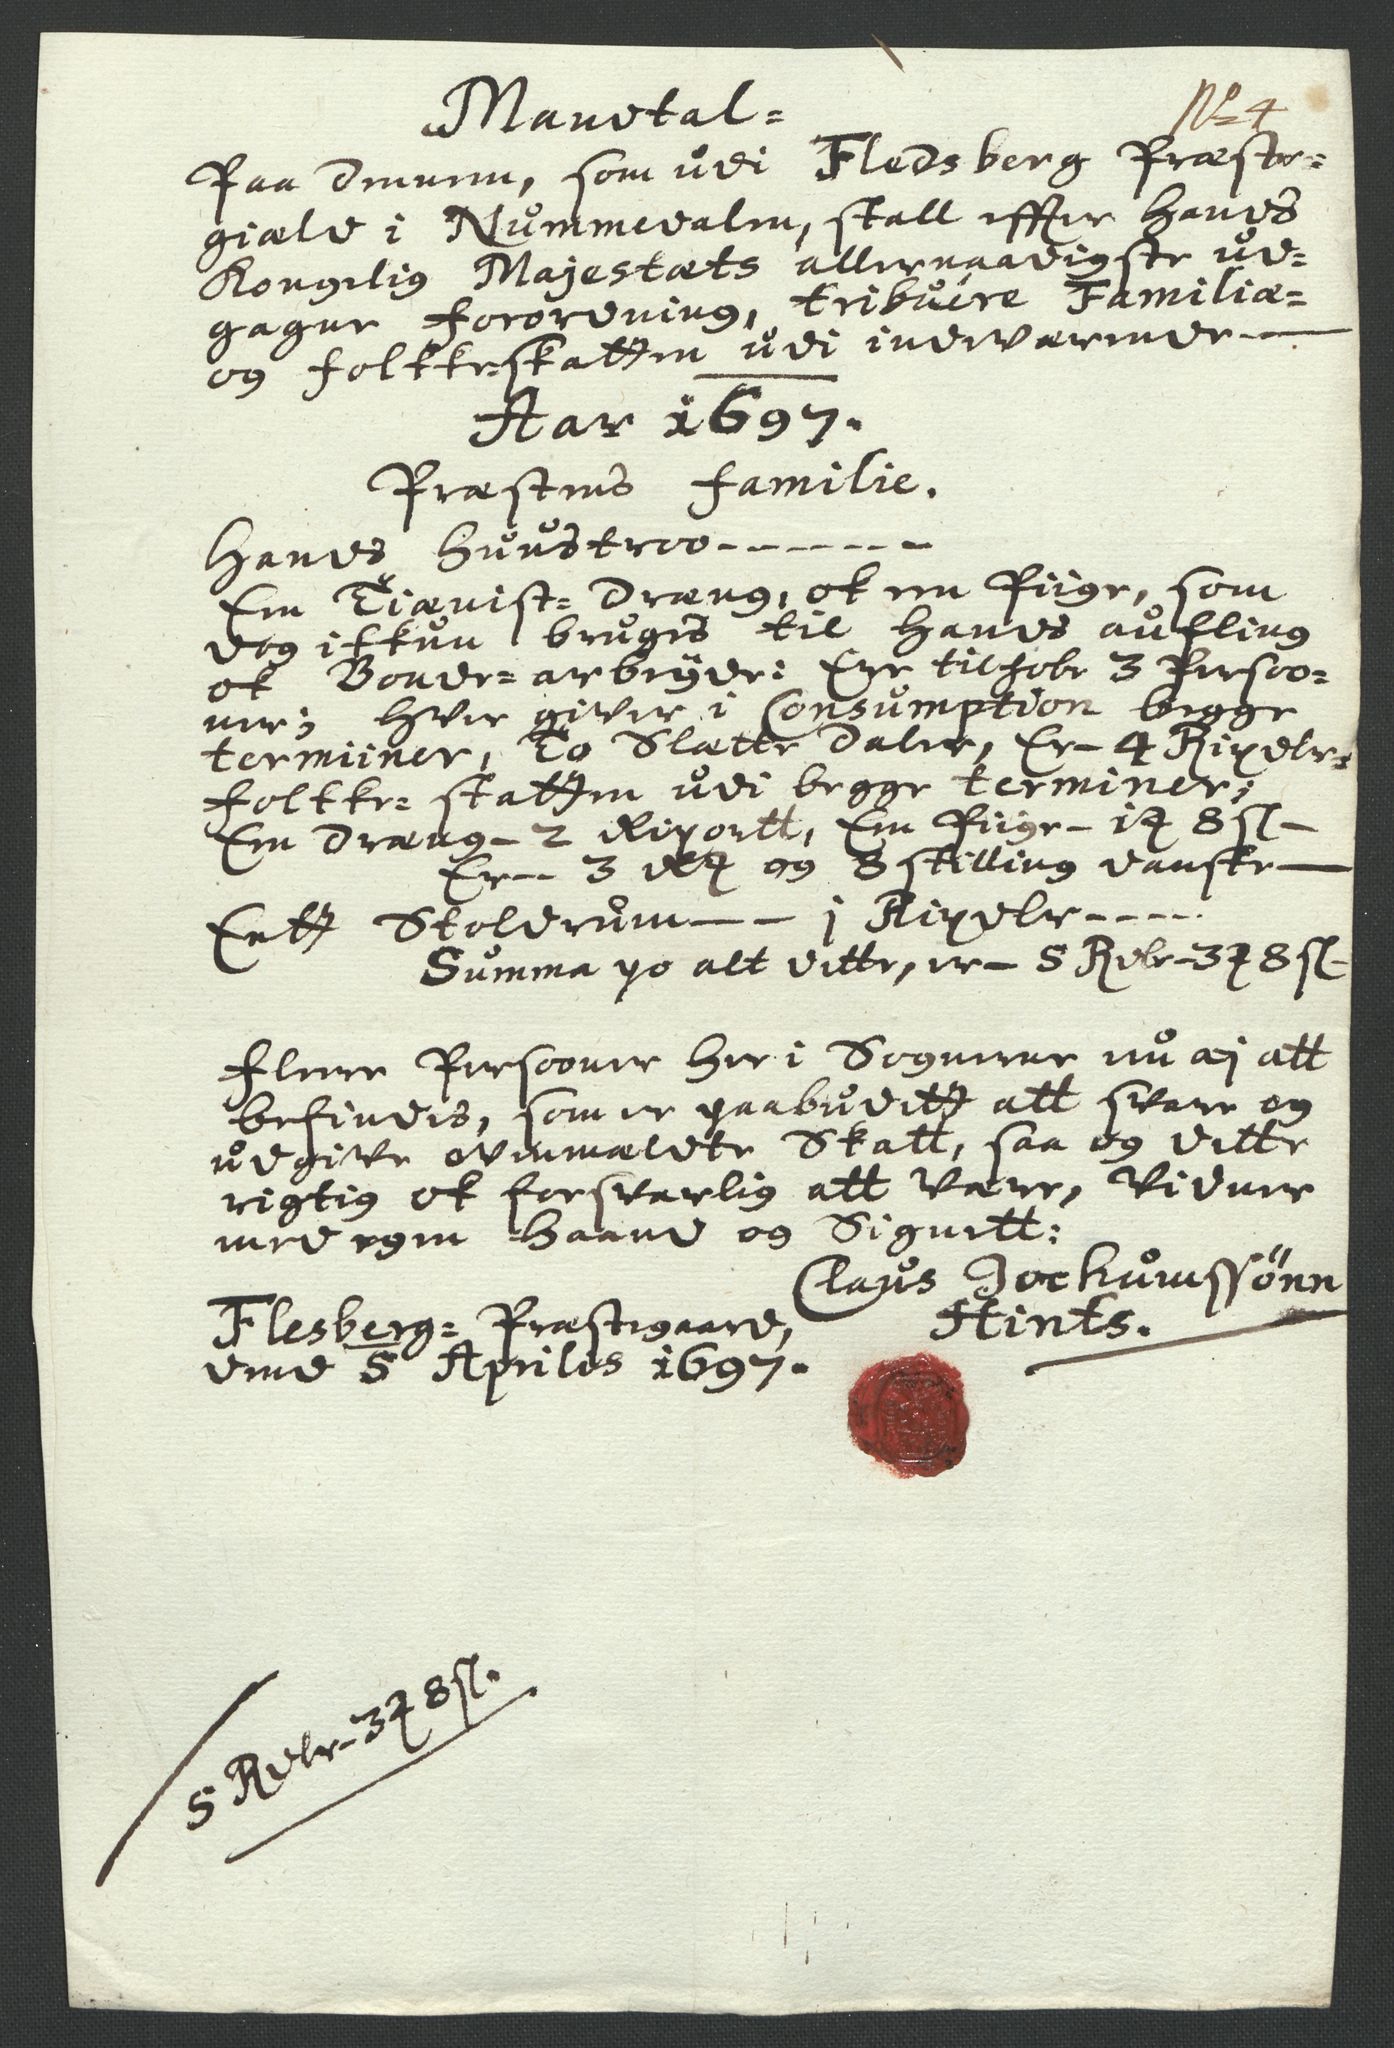 Mandtal=
No 4
Paa dennem, som udi Fledsberg Præste=
giæld i Nummedalen, skall effter Hands
Kongelig Majestæts allernaadigste ud=
gagne forordning, tribuere Familiæ=
og folkkeskatten udi indeværende
Aar 1697.
Præstens familie.
Hands Huustroo------
Een Tiænist= dræng, ok en Piige, som
dog ikkun brugis til Hands aufling
ok Bonde= arbeyde: Ere tilhobe 3 Persoo=
ner; Hver giver i Consumption begge
terminer, To Slætte Daler, Er- 4 Rixdlr=
folkke= skatten udi begge terminer;
Een dræng- 2 Rixortt, Een Piige- 1 ꝶ 8 sl-
Er- 3 ꝶ og 8 skilling danske
Eett Stoldrum-- 1 Rixdlr----
Summa po alt dette, er- 5 Rdlr- 3 ꝶ 8 sl-
flere Persooner her i Sognene nu aj att
befindis, som er paabuditt att svare og
udgive ovenmældte Skatt, saa og dette
rigtig ok forsvarlig att være, Vidner
med egen Haand og Signett:
Claus Jochumssönn
Hints.
Flesberg= Præstegaard,
dend 5 Aprilis 1697.
5 Rdlr- 3 ꝶ 8 sl.